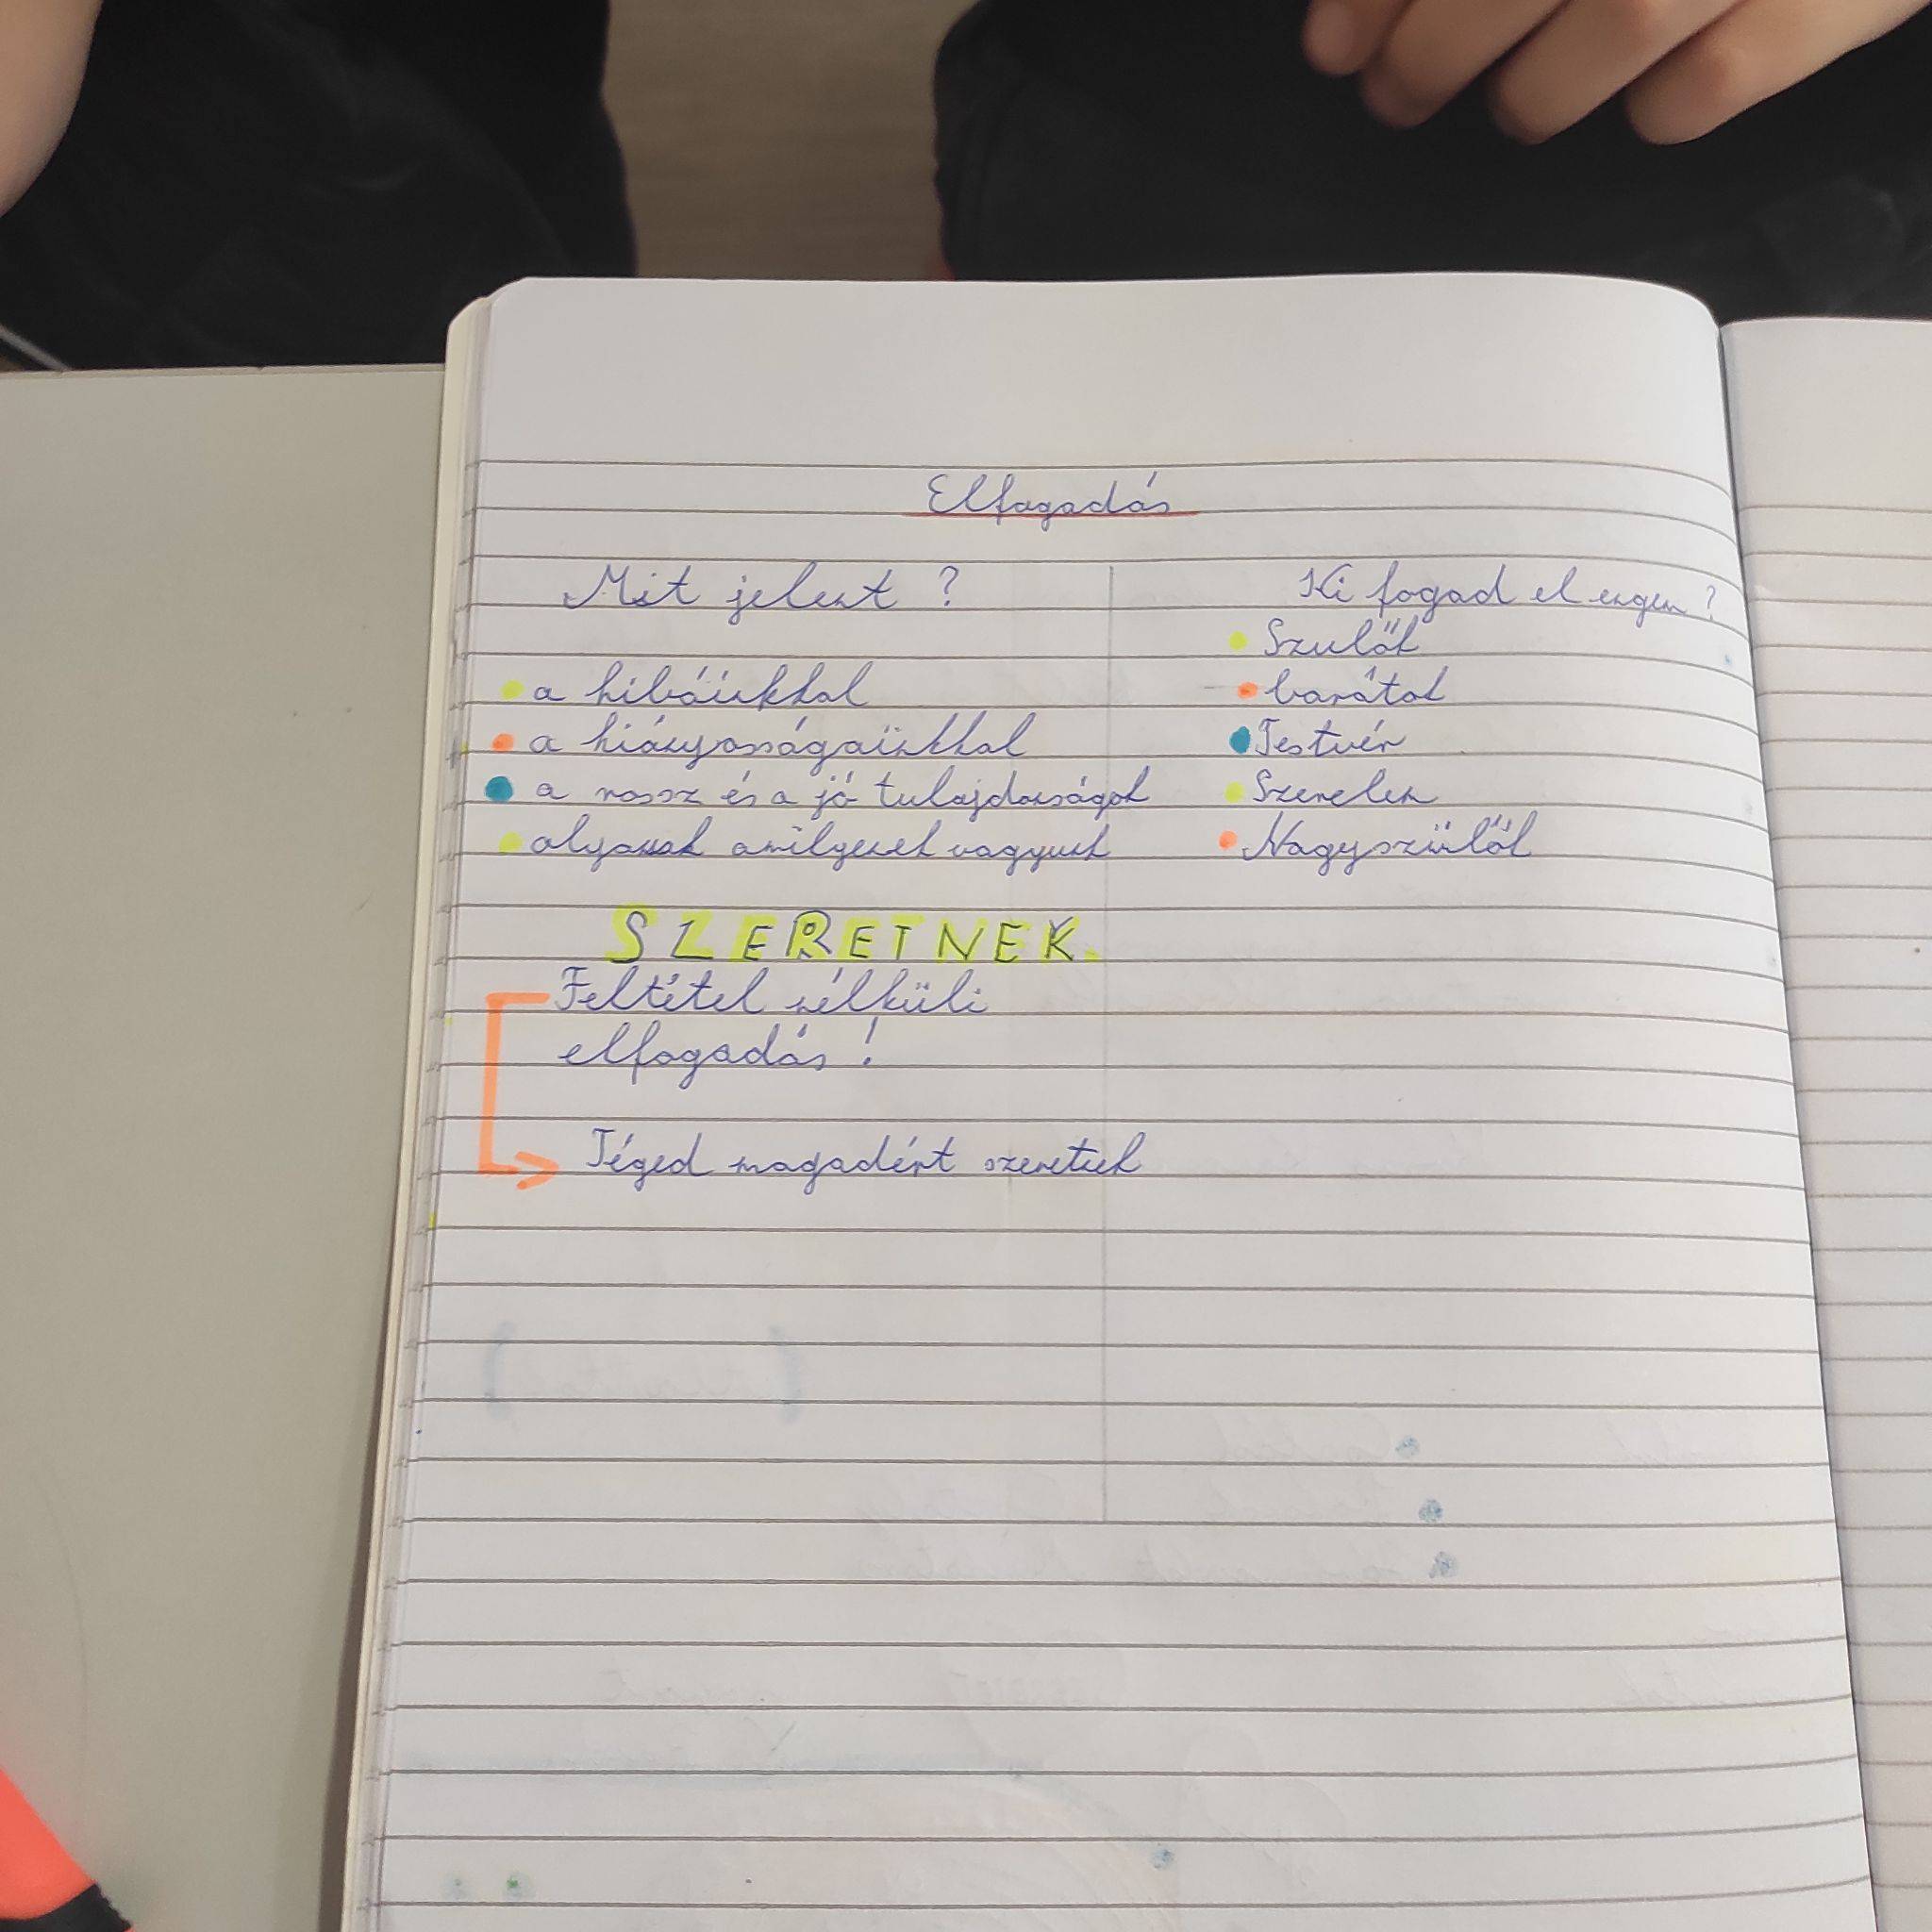 Elfagadás
Mit jelent ?
a hibáinkkal
a hiányosságaінkkal
a rossz és a jó tulajdonságok
olyannak amilyenek vagyunk
SZERETNEK.
Feltétel nélküli
elfogadás !
Téged magadért szeretnek
Ki fogad el engem ?
Szulők
barátok
Testvér
Szerelem
Nagyszülők